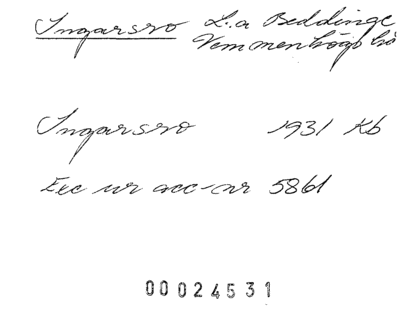 Ingarsro L:a Beddinge
Vemmenhögs hd
Ingarsro 1931 Kb
Exc ur acc-nr 5861
00024531